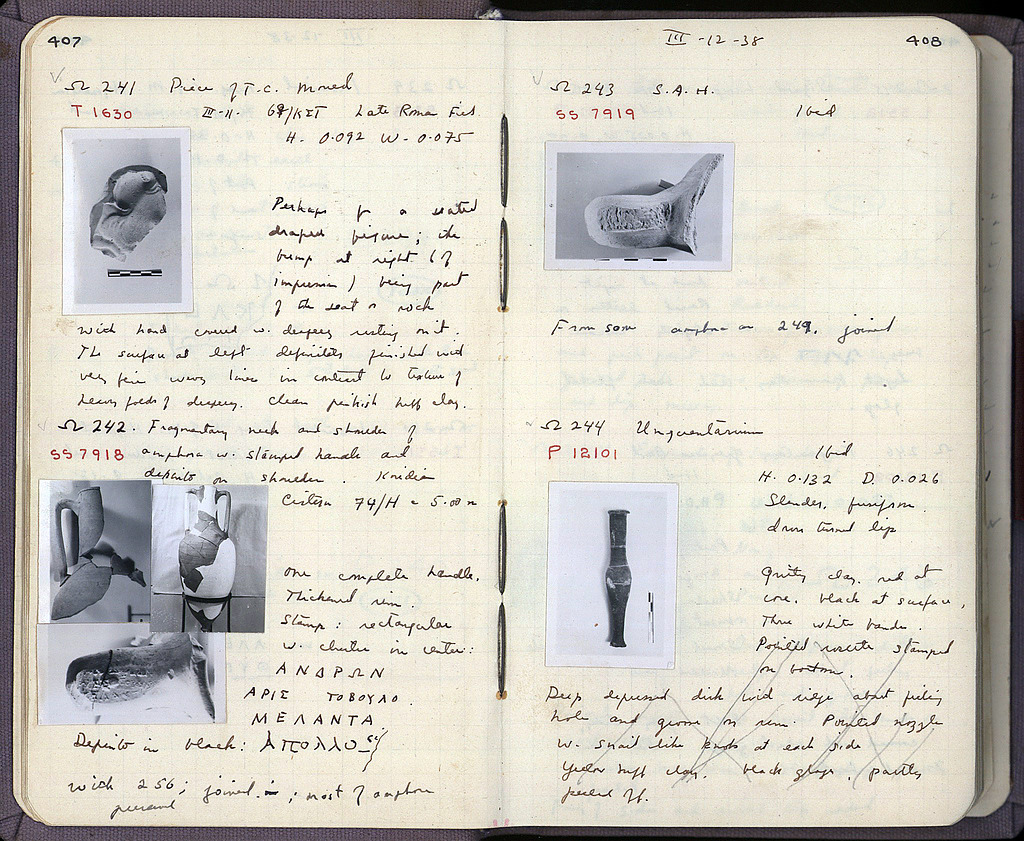 407
Ω 241 Piece of T.C. Mould
T 1630 III-11- 69/ΚΣΤ Late Roman Fill
H. 0.092 W- 0.075
Perhaps for a seated
draped figure; the
bump at right (of
impression) being part
of the seat or rock
with hand covered w. drapery resting on it.
The surface at left definitely finished with
very fine wavy lines in contrast to texture of
heavy folds of drapery. Clean pinkish buff clay.
Ω 242. Fragmentary neck and shoulder of
SS 7918 amphora w. stamped handle and
dipinto on shoulder. Knidian
Cistern 74/H - 5.00 m
One complete handle.
Thickened rim.
Stamp: rectangular
w. in center:
ΑΝΔΡΩΝ
ΑΡΙΣ ΤΟΒΟΥΛΟ
ΜΕΛΑΝΤΑ
Dipinto in black: ΑΠΟΛΛΟ
With 256; joined. ; most of amphora
preserved
III -12-38
408
Ω 243 S.A.H.
SS 7919 Ibid
From same amphora as 249, joined
Ω 244 Unguentarium
P 12101 Ibid
H. 0.132 D. 0.026
Slender, fusiform.
down turned lip
Gritty clay, red at
core, black at surface,
Three white bands.
Pointed rosette stamped
on bottom.
Deep depressed disk with ridge about filling
hole and groove on rim. Pointed nozzle
w. snail like knobs at each side
Yellow buff clay. black glaze, partly
peeled off.